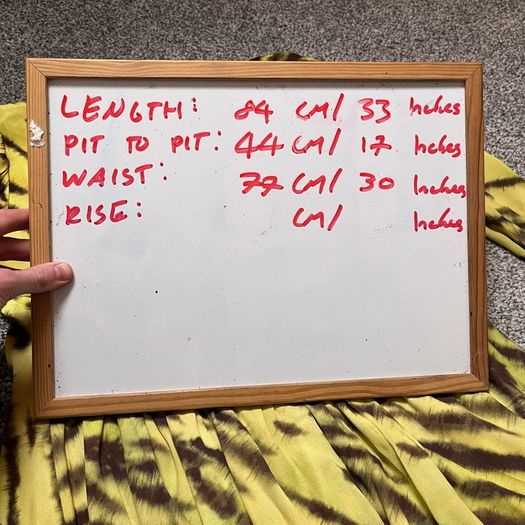 LENGTH: 84 CM/ 33 Inches
PIT TO PIT: 44 CM/ 17 Inches
WAIST: 77 CM/ 30 Inches
RISE: CM/ Inches